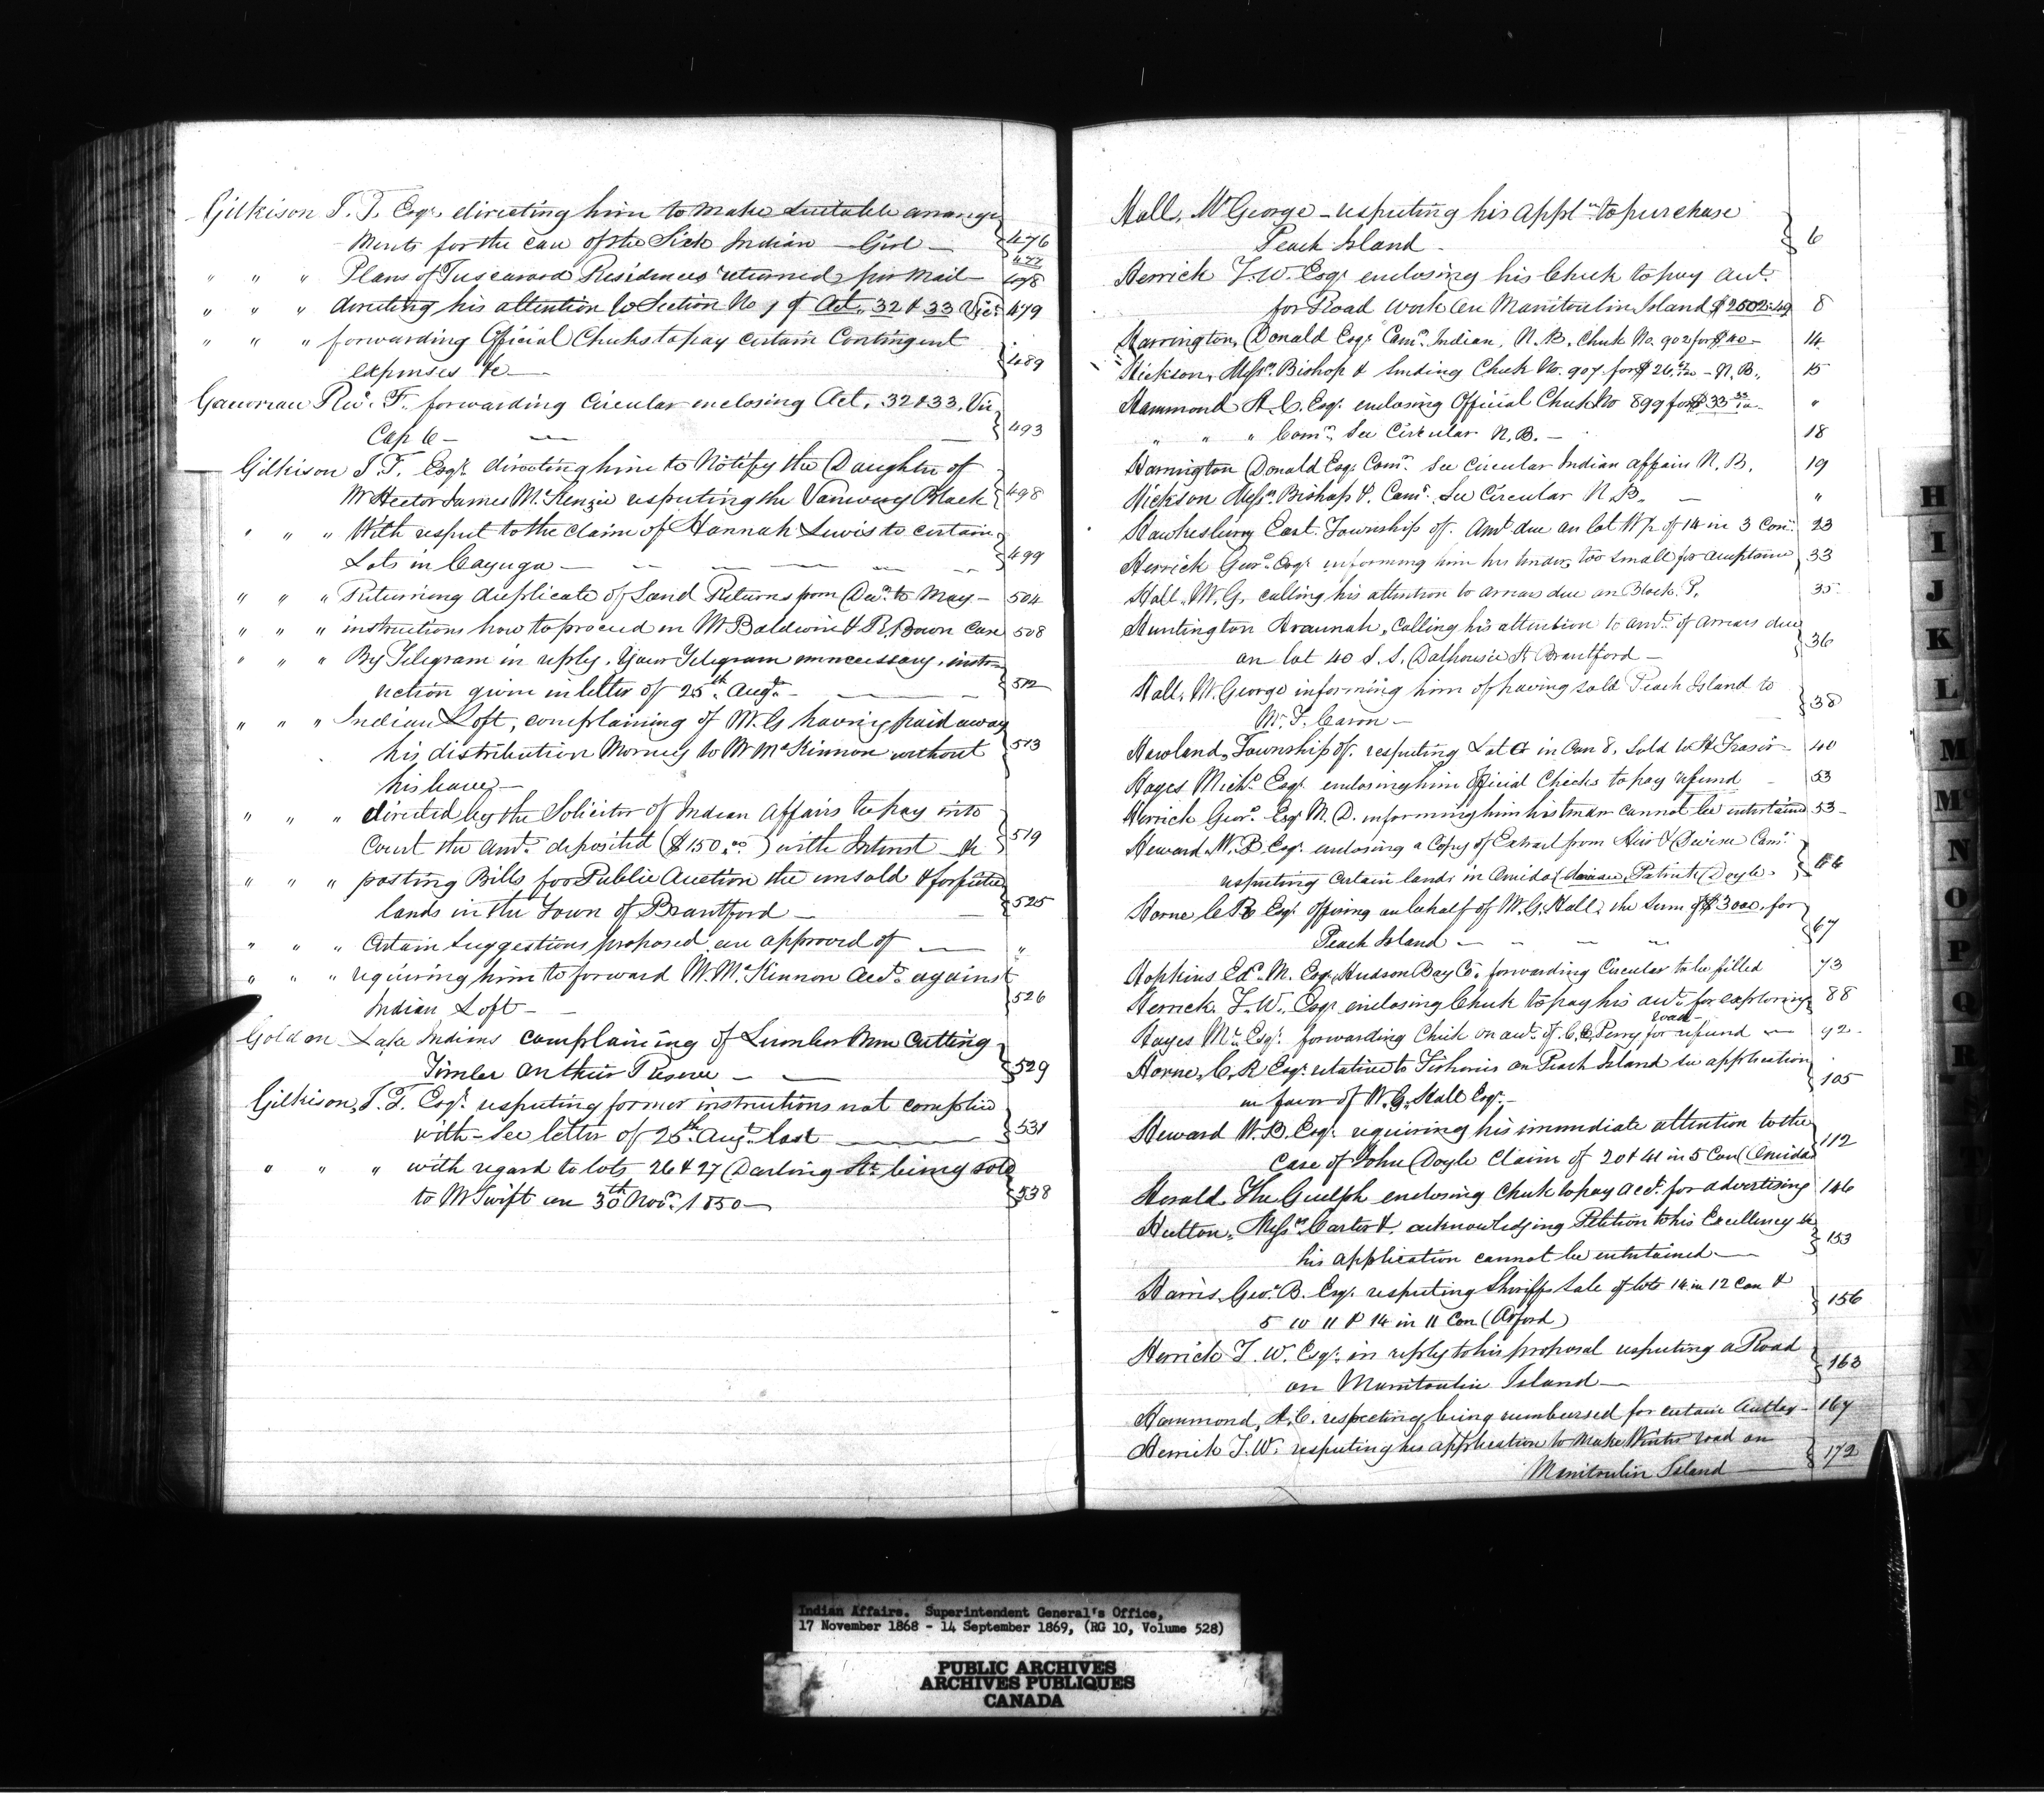 Gilkison J. T. Esqr. directing him to make suitable arrange
ments for the care of the Sick Indian Girl — 476
" " " Plans of Tuscarora Residences returned per Mail — 477 478
" " " directing his attention to Section No 1 of Act. 32 & 33 Vic: 479
" " " forwarding Official Cheks to pay certain Contingent
expenses &c — 489
Revd. F. forwarding Circular enclosing Act. 32 & 33. Vic
Cap 6 — 493
Gilkison J. T. Esqr. directing him to Notify the Daughter of
Mr Hector James McKenzie respecting the Block 498
" " " With respect to the claim of Hannah Lewis to certain
Lots in Cayuga — 499
" " " Returning duplicate of Land Returns from Decr. to May — 504
" " " instructions how to proceed in Mr Baldwin & R. Brown Case 508
" " " By Telegram in reply. Your Telegram unnecessary. instr-
uction given in letter of 25th. Augt. — 512
" " " Indian Loft, complaining of Mr. G having paid away
his distribution Moneys to Mr McKinnon without
his leave — 513
" " " directed by the Solicitor of Indian Affairs to pay into
Court the amt. deposited ($150.00) with Interest &c 519
" " " posting Bills for Public Auction the unsold & forfeited
lands in the Town of Brantford — 525
" " " Certain Suggestions proposed are approved of — "
" " " requiring him to forward Mr. McKinnon Acct. against
Indian Loft — 526
Golden Lake Indians complaining of Lumber Men Cutting
Timber on their Reserve — 529
Gilkison, J. T. Esqr. respecting former instructions not complied
with — See letter of 25th. Augt. last — 531
" " " with regard to lots 26 & 27 Darling St. being sold
to Mr Swift on 30th Novr. 1850 — 538
Hall, Mr George — respecting his Appln. to purchase
Peach Island — 6
Herrick T. W. Esqr. enclosing his Check to pay amt.
for Road work on Manitoulin Island $2502.49 8
Harrington, Donald Esqr. Comr. Indian, N. B. Chek No. 902 for $40 — 14
Hickson, Messrs. Bishop & sending Chek No. 907 for $26 — N. B. 15
Hammond A. C. Esqr. enclosing Official Chek No 899 for $33 "
" " " Comr. See Circular N. B. — 18
Harrington Donald Esqr. Comr. See Circular Indian affairs N. B. 19
Hickson Messrs. Bishop &. Comr. See Circular N. B. — "
Hawkesbury East Township of. Amt due on lot W½ of 14 in 3 Con: 23
Herrick Geo. Esqr. informing him his tender too small for acceptance 33
Hall, W. G. calling his attention to arrears due on Block P. 35
Huntington Araunah, Calling his attention to amt. of arrears due
on lot 40 S. S. Dalhousie St. Brantford — 36
Hall, W. George informing him of having sold Peach Island to
Mr. F. Caron — 38
Howland, Township of. respecting Lot in Con 8. Sold to A Frasir — 40
Hayes Michl. Esqr. enclosing him Official Checks to pay refund — 53
Herrick Geo. Esqr M. D. informing him his tender cannot be entertained 53 —
Heward W. B Esqr. enclosing a Copy of Extract from Heir & Devisee Com:
respecting Certain lands in Oneida Patrick Doyle. 66
Horne C R Esqr. Offering on behalf of W. G. Hall, the Sum of $3000 for
Peach Island — 67
Hopkins Ed. M. Esqr. Hudson Bay Co. forwarding Circular to be filled 73
Herrick. T. W., Esqr. enclosing Check to pay his amt. for exploring 88
road
Hayes M. Esqr. forwarding Chek on amt. of C. C. Perry for refund — 92
Horne, C. R Esqr. relative to Fisheries on Peach Island see application
in favor of W. G. Hall Esqr. — 105
Heward W. B. Esqr. requiring his immediate attention to the
Case of John Doyle Claim of 20 & 41 in 5 Con (Oneida) 112
Herald. The Guelph enclosing Chek to pay acct. for advertising 146
Hutton. Messrs. Carter &. acknowledging Petition to his Excellency &c
his application cannot be entertained — 153
Harris, Geo. B. Esqr. respecting Sheriffs Sale of lots 14 in 12 Con &
5 10 11 & 14 in 11 Con (Orford) 156
Herrick T. W. Esqr. in reply to his proposal respecting a Road
on Manitoulin Island — 163
Hammond, A. C. respecting being reimbursed for certain Outlay — 167
Herrick T. W. respecting his application to make Winter road on
Manitoulin Island — 172
H
I
J
K
L
M
Mc
N
O
P
Q
R
Indian Affairs. Superintendent General's Office,
17 November 1868 - 14 September 1869, (RG 10, Volume 528)
PUBLIC ARCHIVES
ARCHIVES PUBLIQUES
CANADA